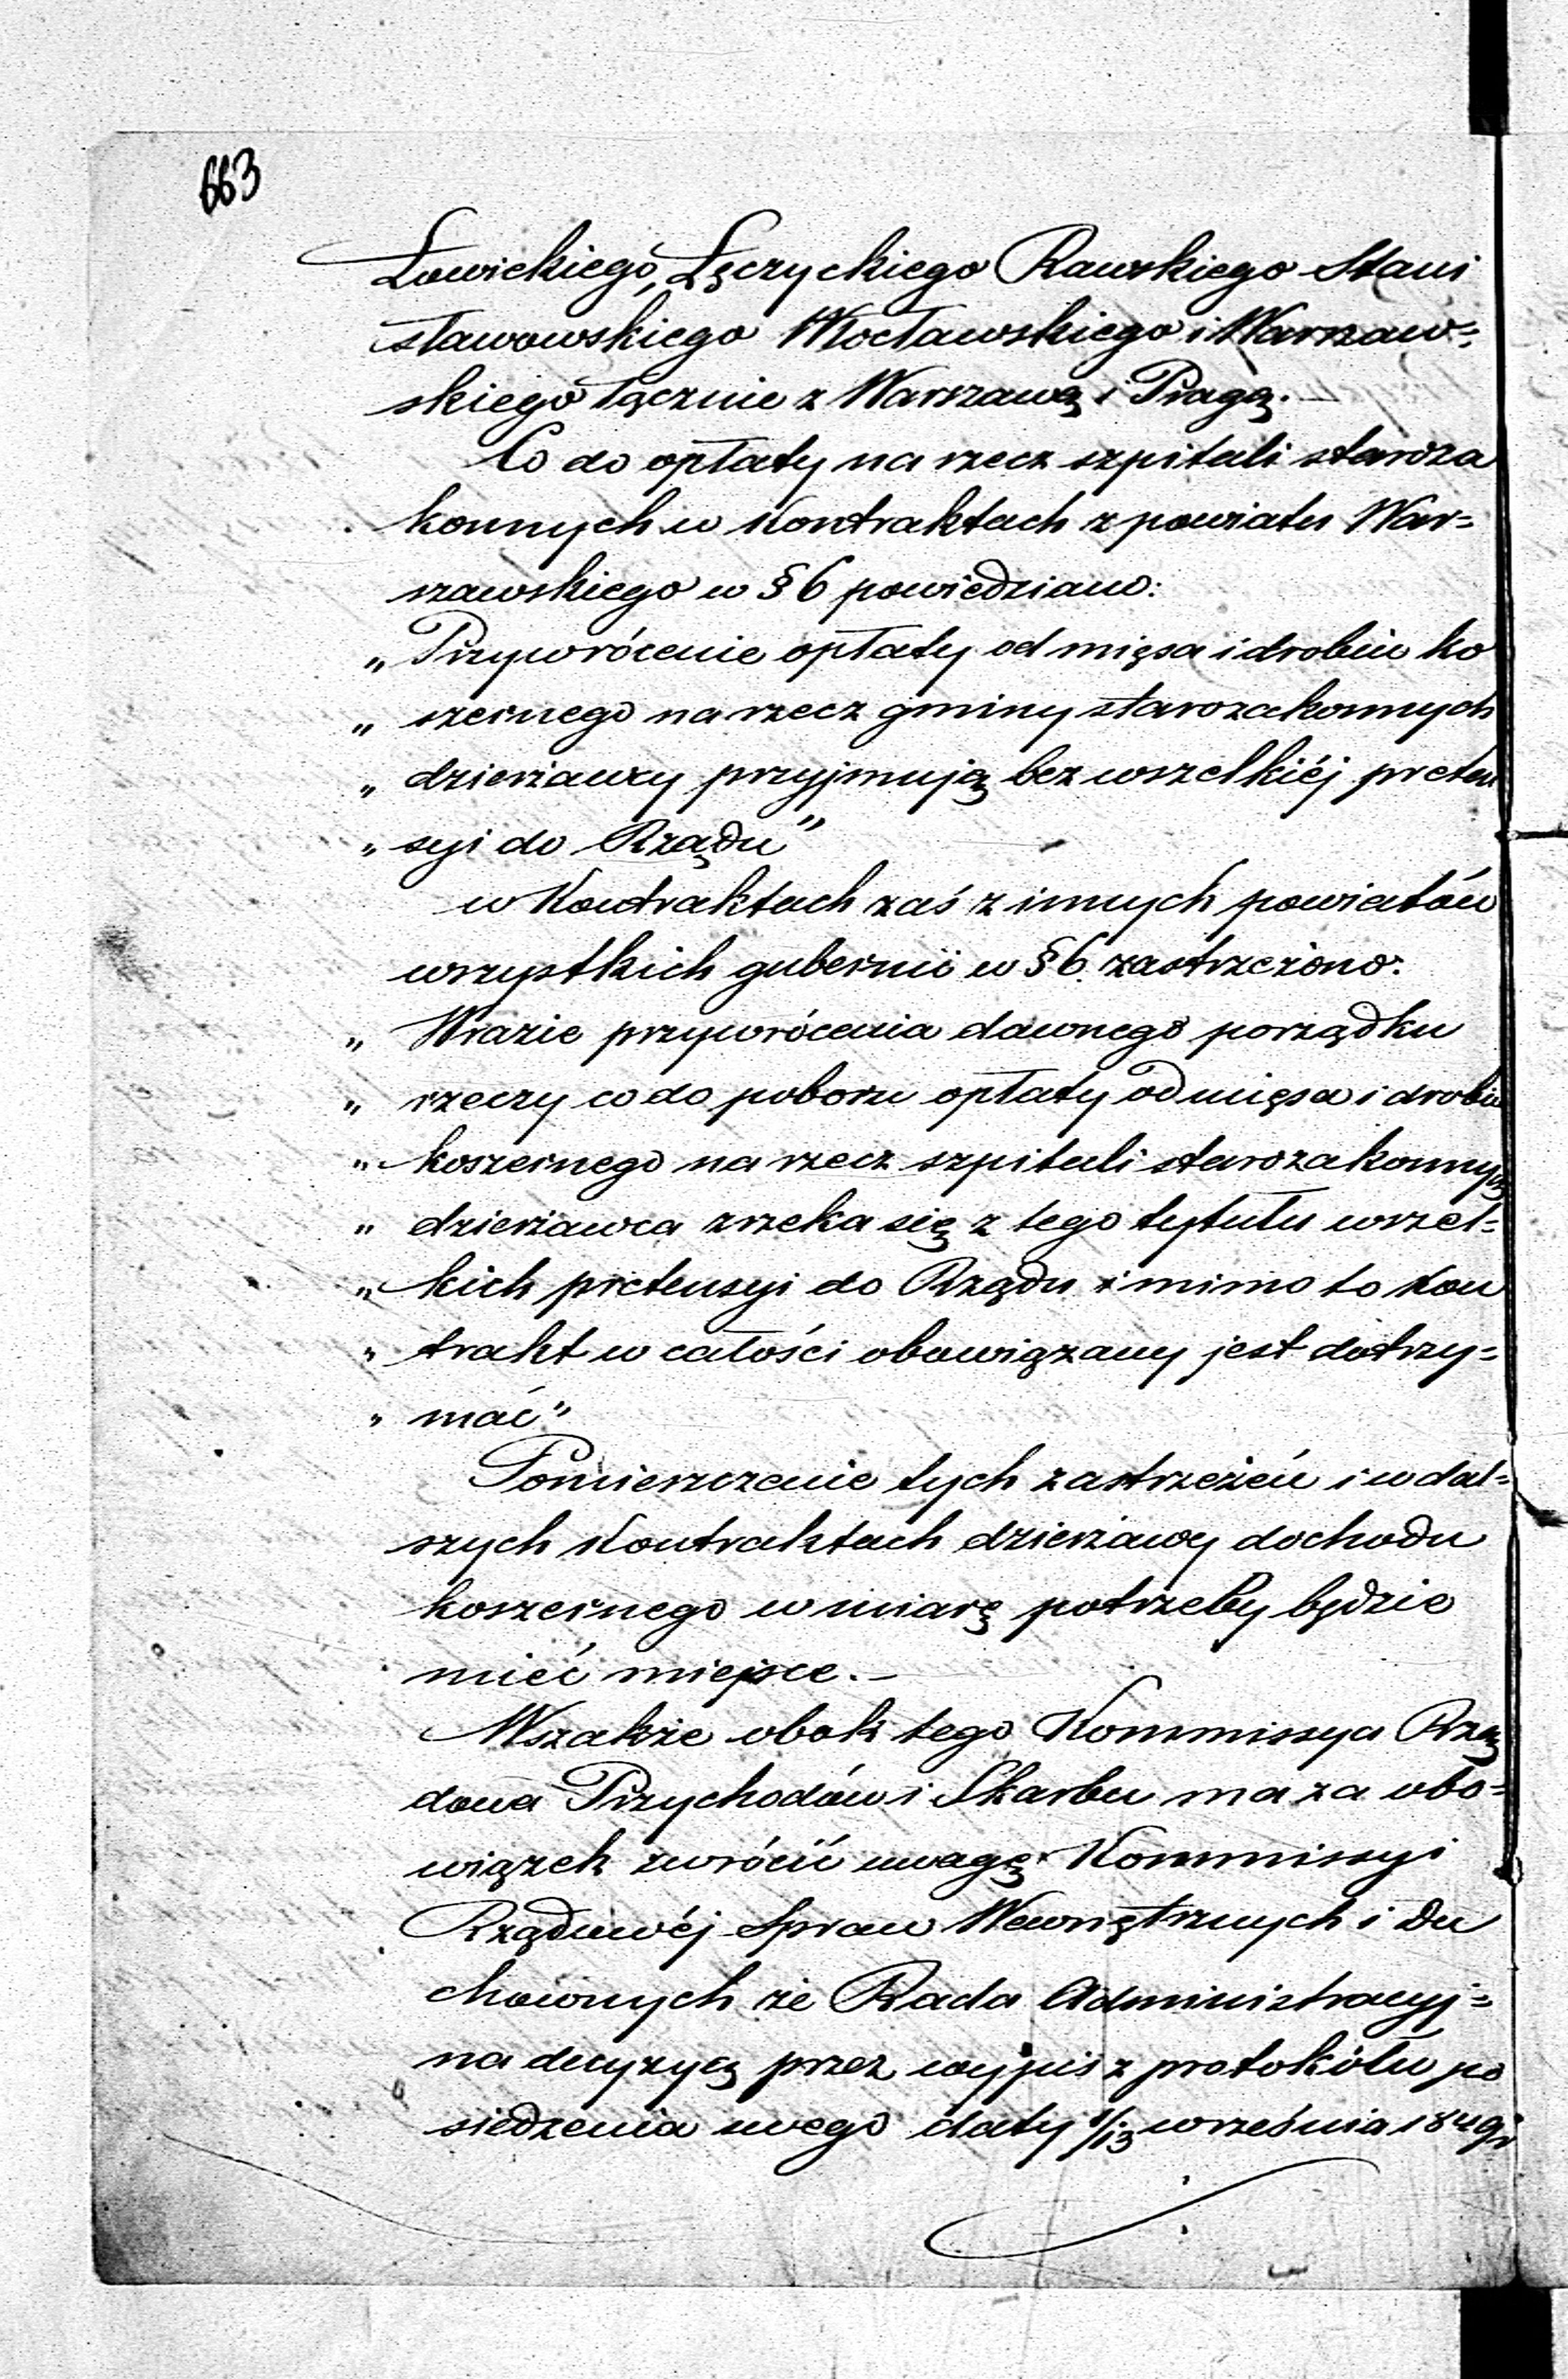 663
Łowickiego, Łęczyckiego Rawskiego Stani
sławowskiego Włocławskiego i Warszaw-
skiego łącznie z Warszawą i Pragą.—
Co do opłaty na rzecz szpitali staroza
konnych w Kontraktach z powiatu War=
szawskiego w § 6 powiedziano:
„ Przywrócenie opłaty od mięsa i drobiu ko
„ szernego na rzecz gminy starozakonnych
„ dzierżawcy przyjmują bez wszelkiéj preten
„ syi do Rządu"
w Kontraktach zaś z innych powiatów
wszystkich gubernii w § 6 zastrzeżono:
„ Wrazie przywrócenia dawnego porządku
„ rzeczy co do poboru opłaty od mięsa i drobiu
„ koszernego na rzecz szpitali starozakonnych
„ dzierżawca zrzeka się z tego tytułu wszel=
„ kich pretensyi do Rządu i mimo to Kon
„ trakt w całości obowiązany jest dotrzy=
„ mać"
Pomieszczenie tych zastrzeżeń i w dal=
szych Kontraktach dzierżawy dochodu
koszernego w miarę potrzeby będzie
mieć miejsce.—
Wszakże obok tego Kommissya Rzą
dowa Przychodów i Skarbu ma za obo=
wiązek zwrócić uwagę Kommissyi
Rządowéj Spraw Wewnętrznych i Du
chownych że Rada Administracyj=
na decyzyą przez wypis z protokółu po
siedzenia swego daty 1/13 września 1849 r